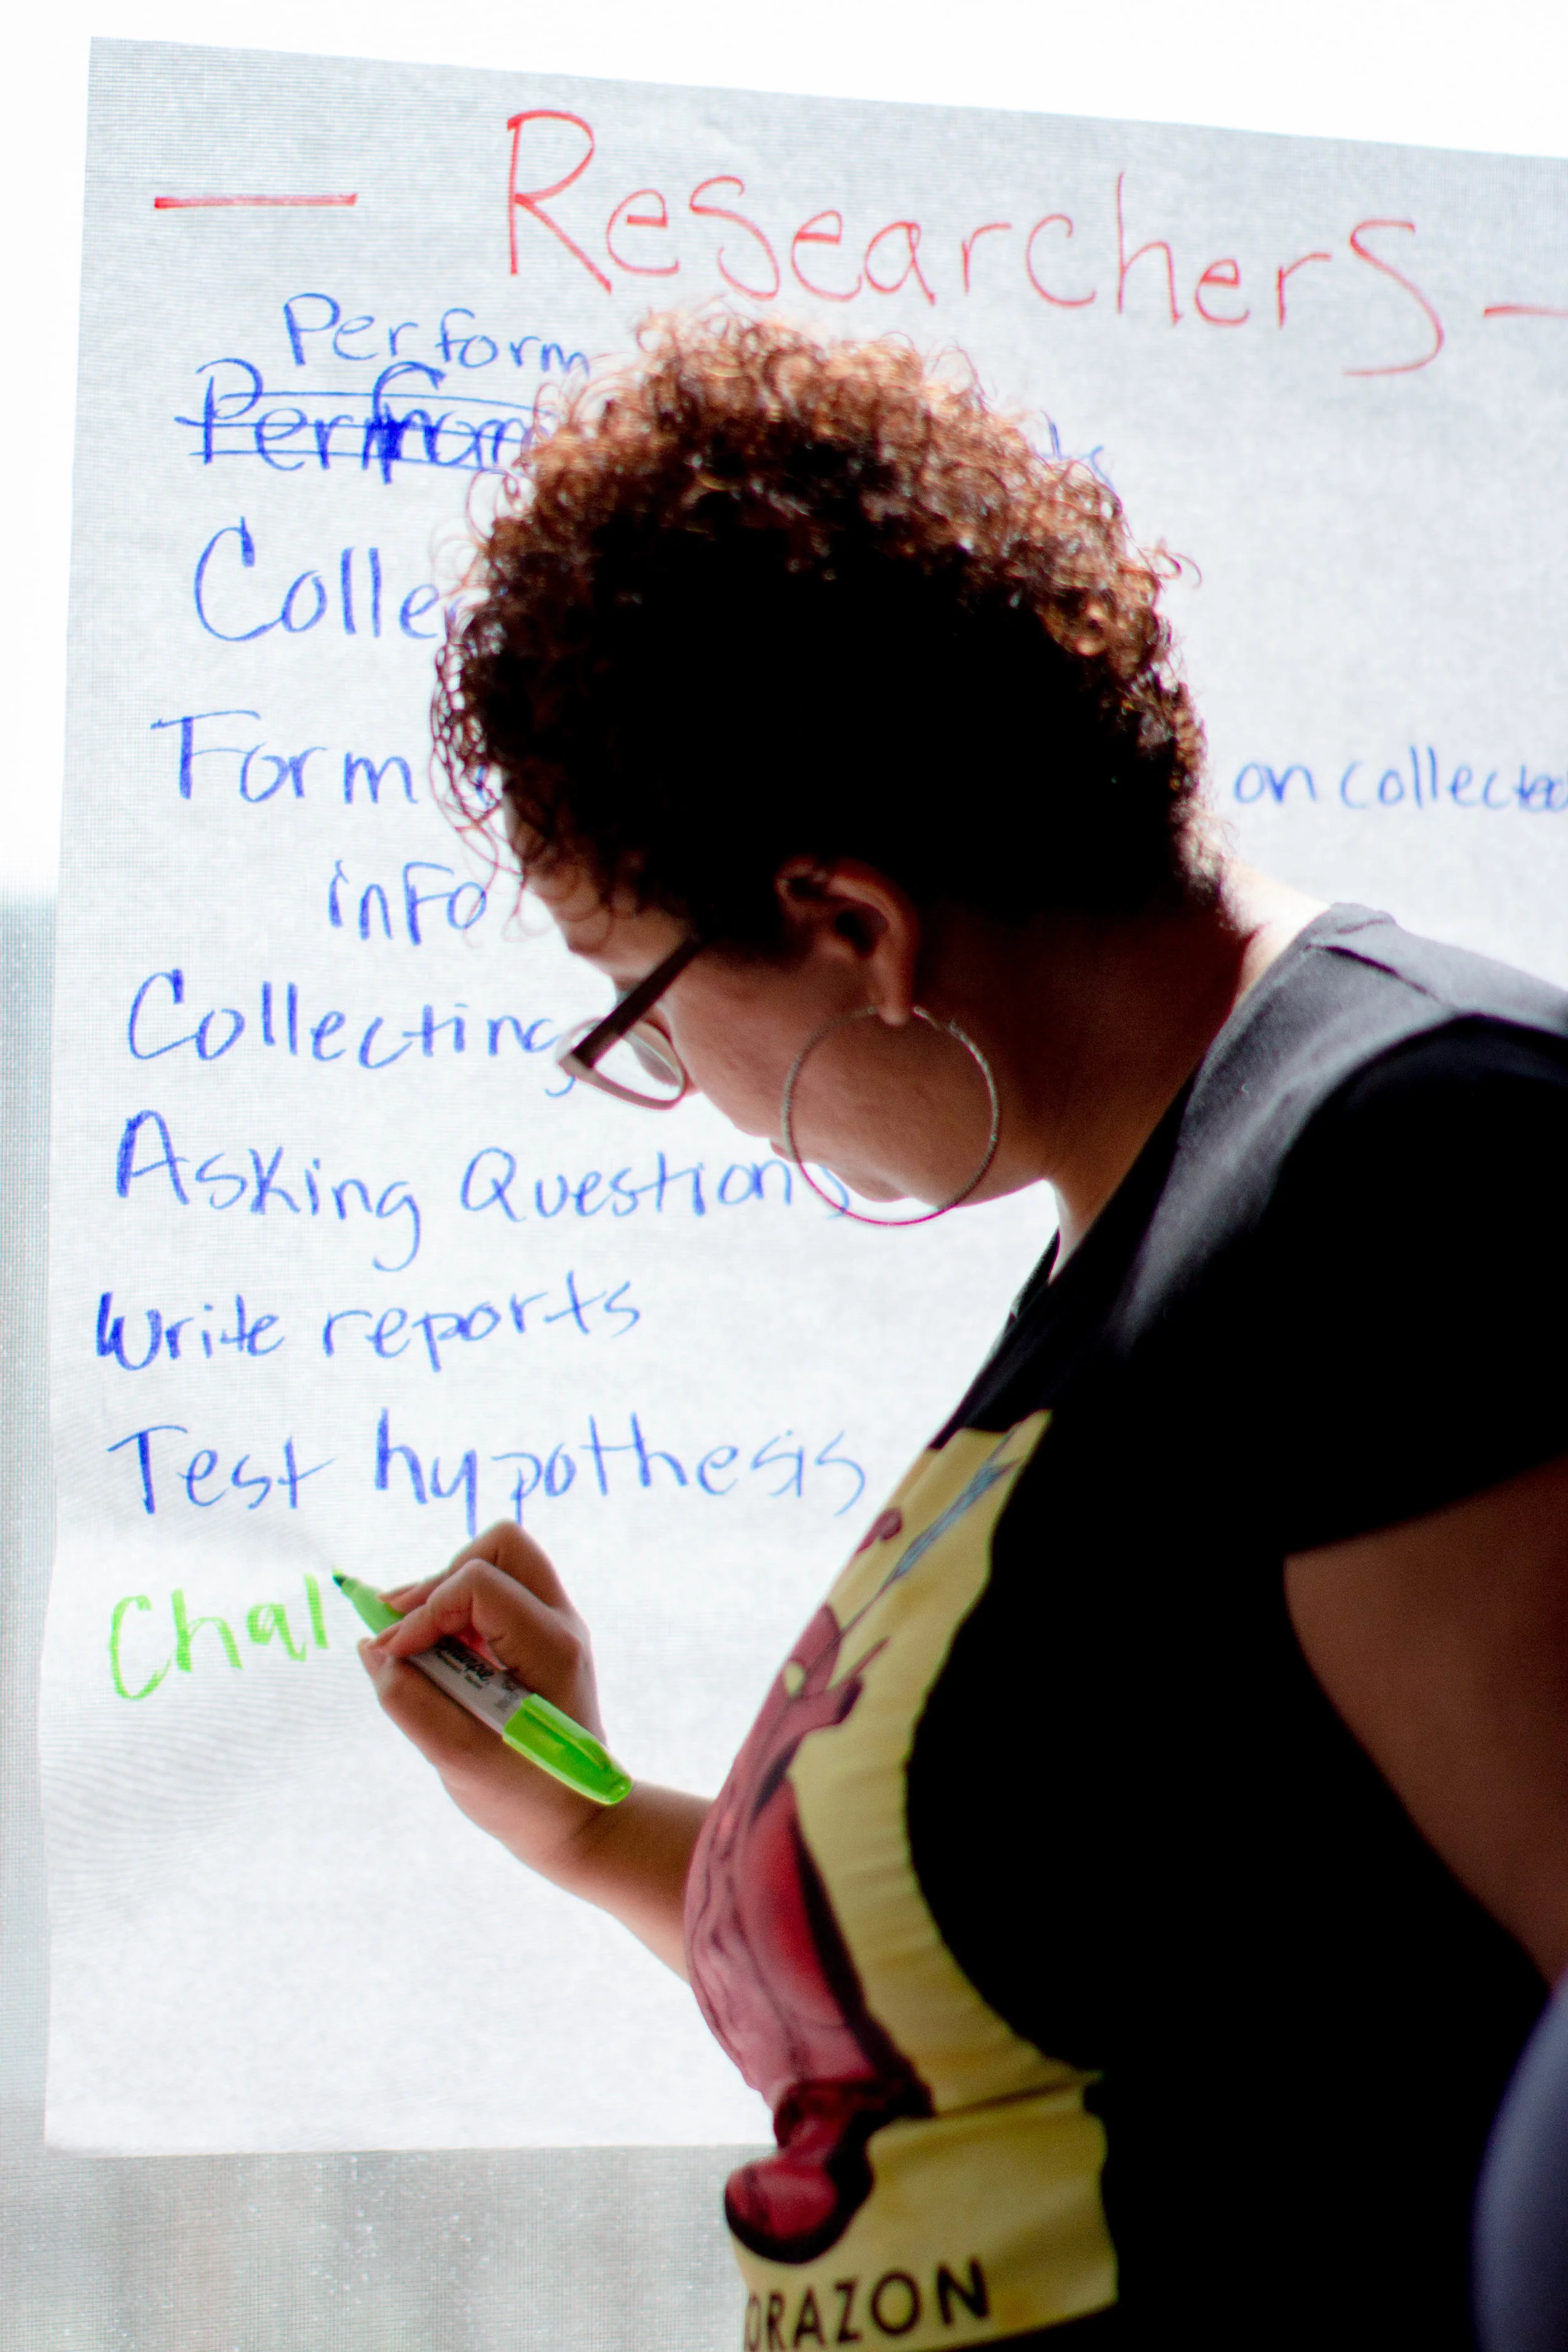 — Researchers —
Perform
Collec
Form on collected
info
Collecting
Asking Questions
Write reports
Test hypothesis
Chal
Sharpie
ORAZON